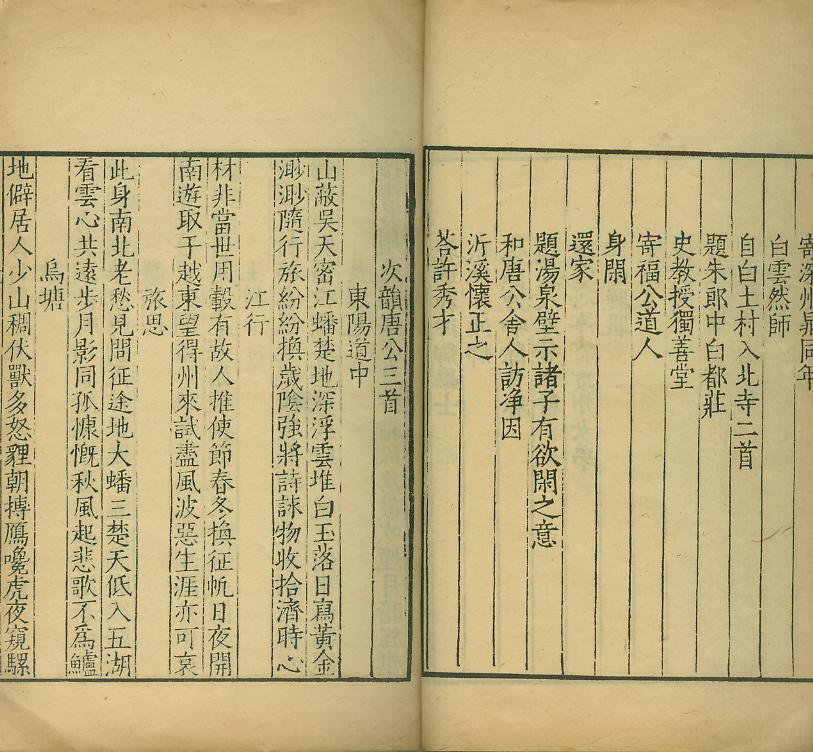 寄深州晁同年
白雲然師
自白土村入北寺二首
題朱郎中白都莊
史教授獨善堂
寄福公道人
身閑
還家
題湯泉壁示諸子有欲閑之意
和唐公舍人訪净因
沂溪懷正之
荅許秀才
次韻唐公三首
東陽道中
山蔽吳天密江蟠楚地深浮雲堆白玉落日寫黃金
渺渺隨行旅紛紛換歲陰強將詩詠物收拾濟時心
江行
材非當世用轂有故人推使節春冬換征帆日夜開
南遊取于越東望得州來試盡風波惡生涯亦可哀
旅思
此身南北老愁見問征途地大蟠三楚天低入五湖
看雲心共遠步月影同孤慷慨秋風起悲歌不爲鱸
烏塘
地僻居人少山稠伏獸多怒貍朝搏鴈嚵虎夜窺騾